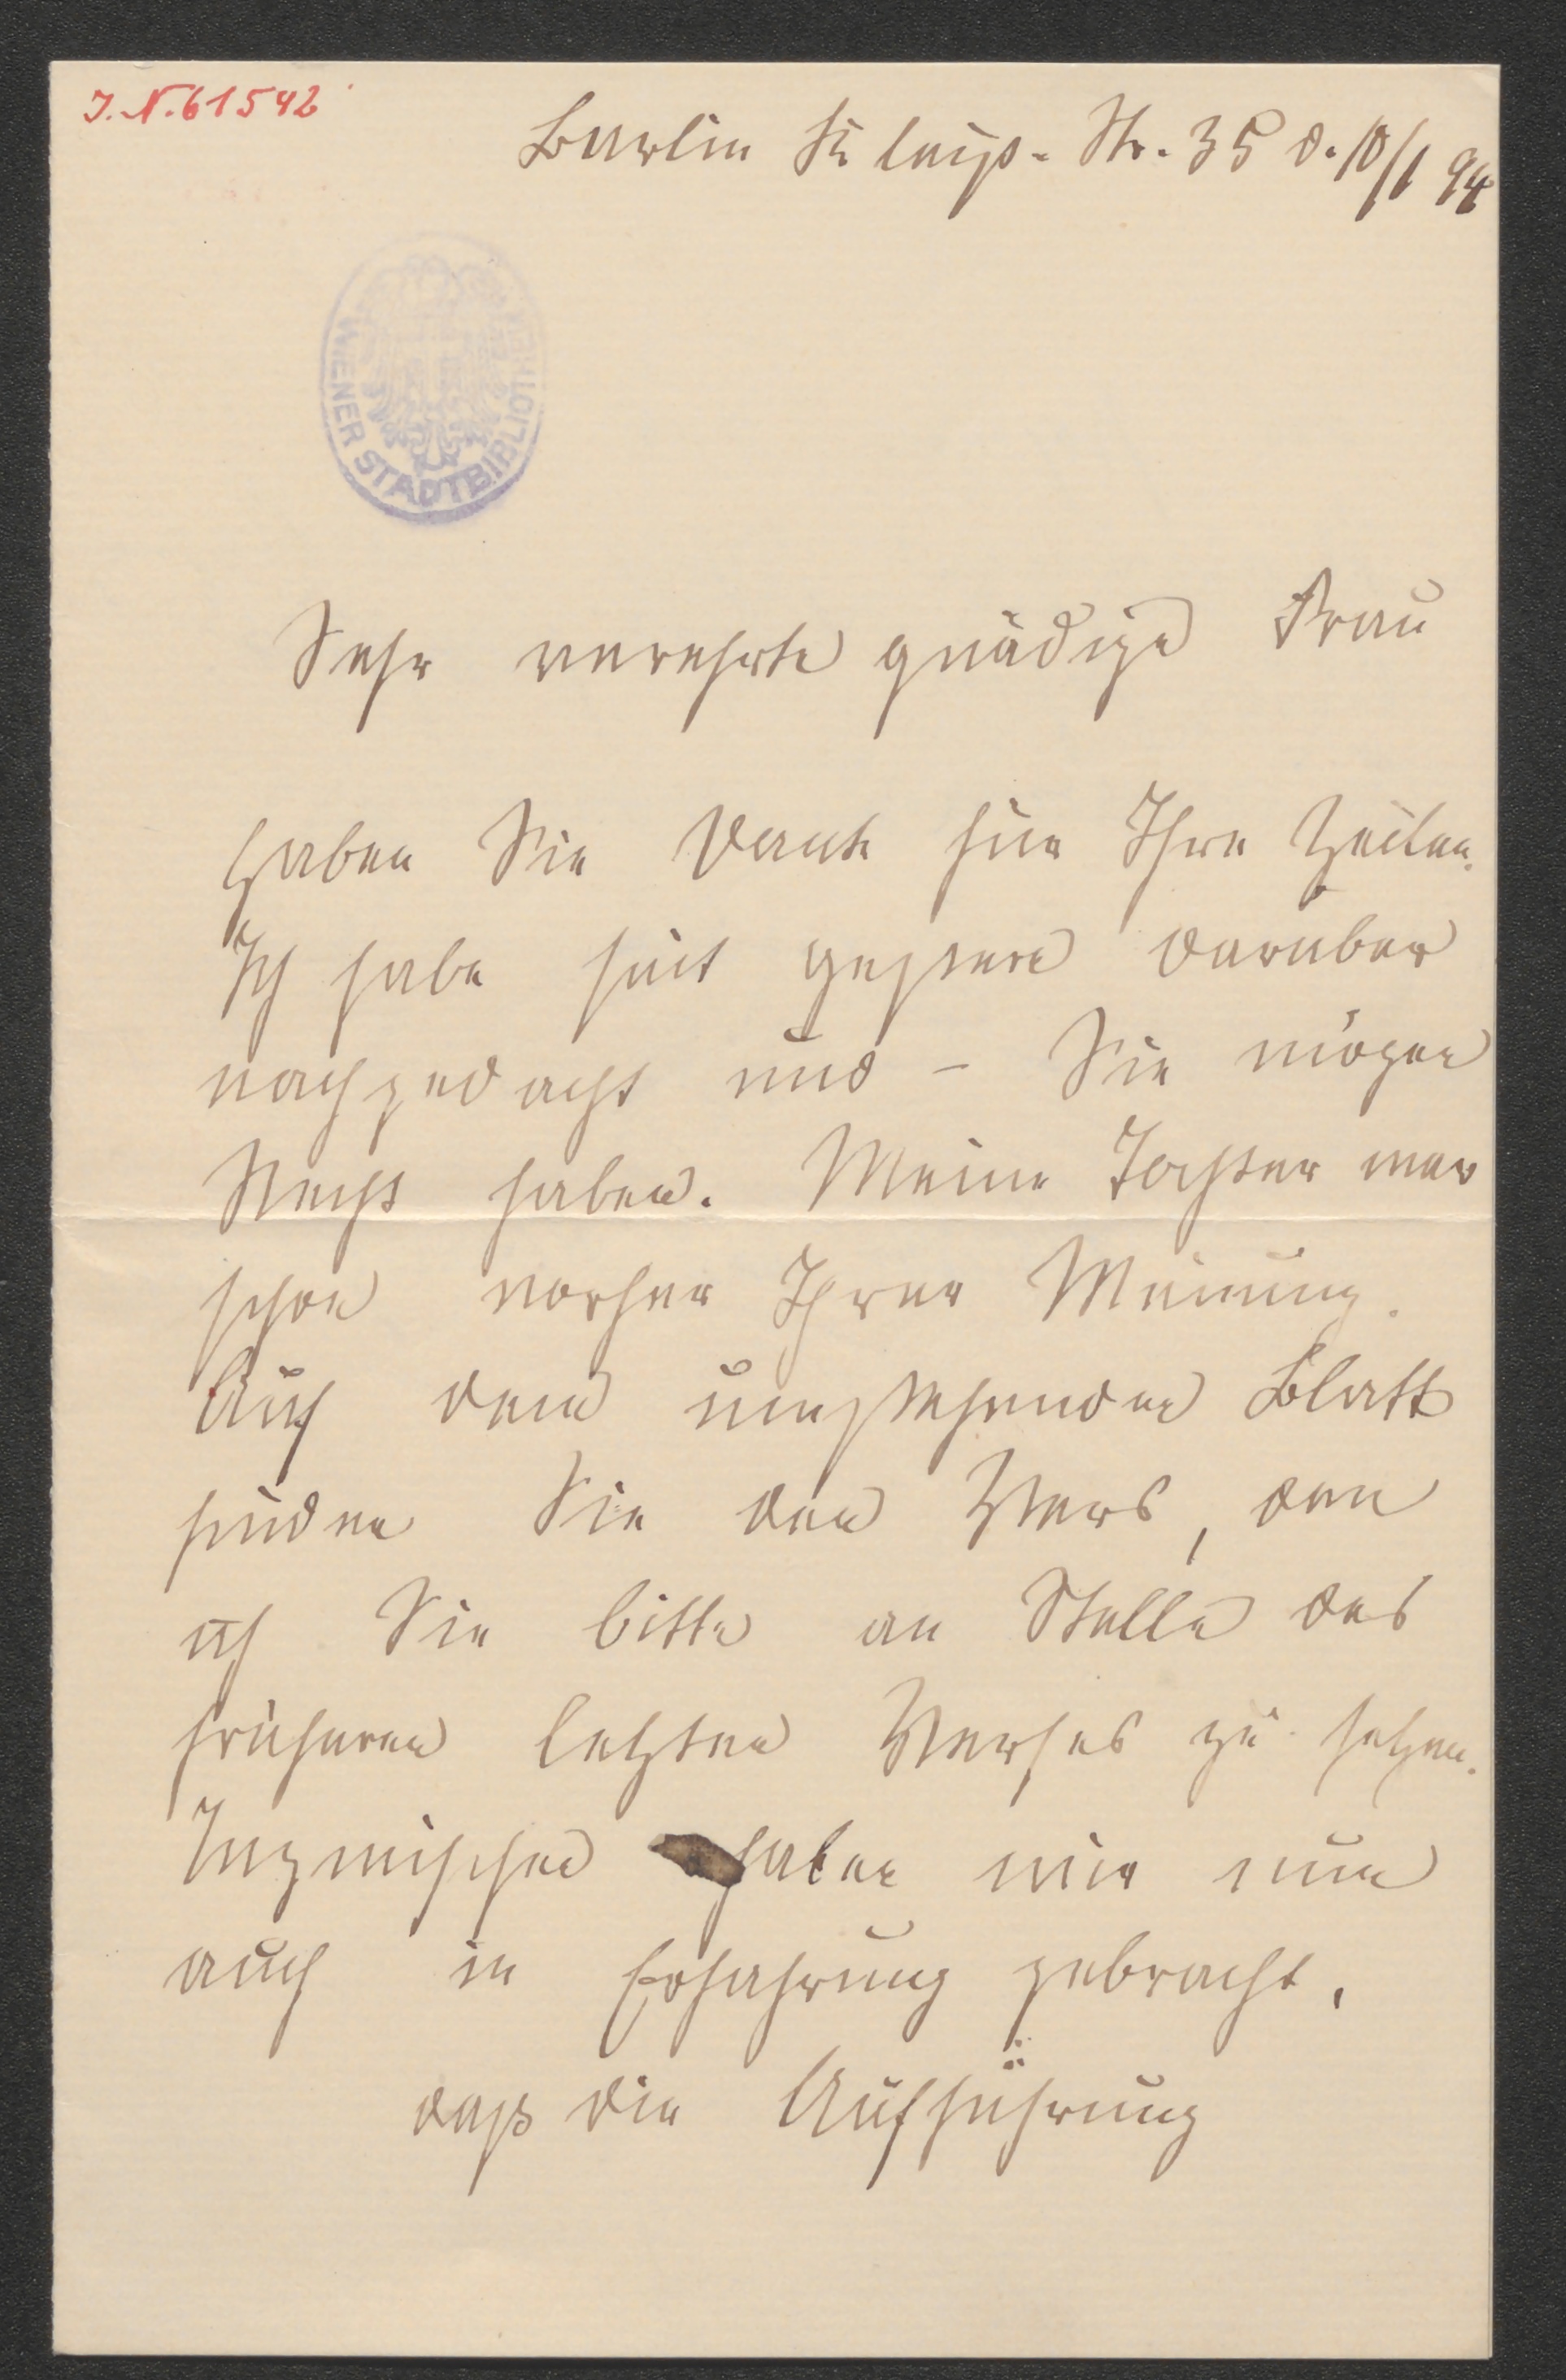 J. N. 61542
Berlin Kleist-Str. 35 d. 10/1 94
WIENER STADTBIBLIOTHEK
Sehr verehrte gnädige Frau
Haben Sie Dank für Ihre Zeilen.
Ich habe seit gestern darüber
nachgedacht und – Sie mögen
Recht haben. Meine Tochter war
schon vorher Ihrer Meinung.
Auf dem umstehenden Blatt
finden Sie den Vers, den
ich Sie bitte an Stelle des
früheren letzten Verses zu setzen.
Inzwischen haben wir nun
auch in Erfahrung gebracht,
daß die Aufführung